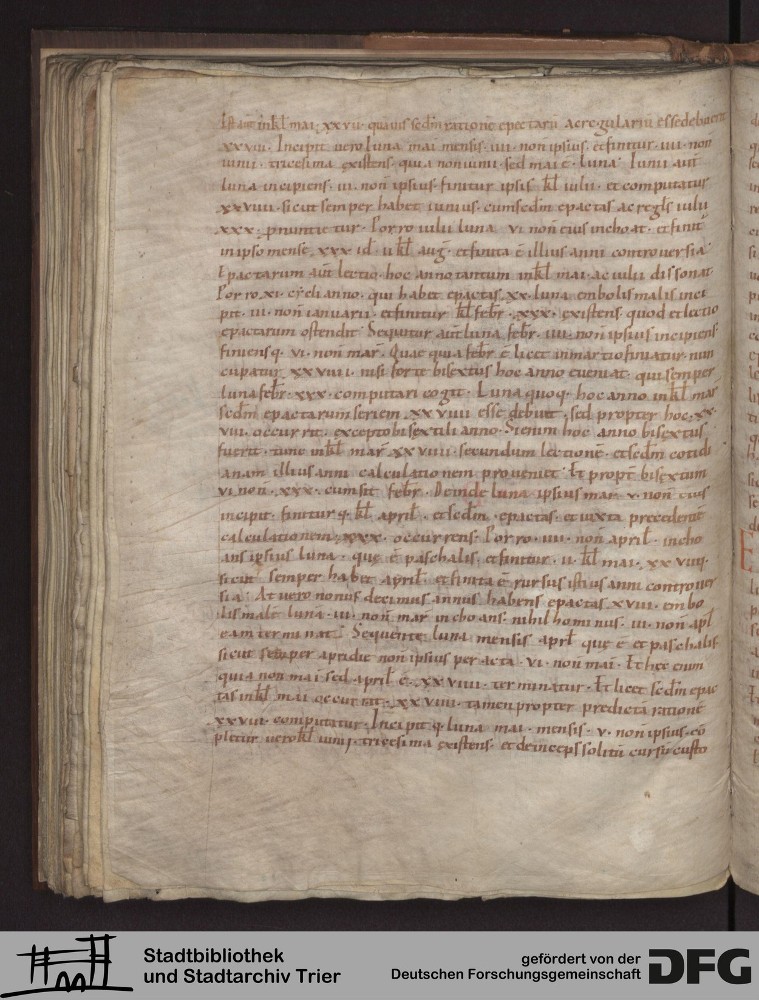 Est aut in kł mai; xxvii · quãuis scdm ratione epactarũ ac regulariũ esse debuerit
xxviii · Incipit uero luna mai mensis · iiii · non ipsius · et finitur · iiii · non
iunii · tricesima existens · quia non iunii · sed mai ē · luna · Iunii aut
luna incipiens · iii · non ipsius · finitur ipsis kł iulii · et computatur
xxviiii · sicut semper habet iunius · cum scdm epactas ac regls iulii
xxx · pnuntietur · Porro iulii luna vi non eius inchoat · et finit
in ipso mense · xxx · id · ii kł aug · et finita ē illius anni controuersia ·
Epactarum aut lectio · hoc anno tantum in kł mai · ac iulii dissonat
Porro xi · cycli anno · qui habet epactas xx · luna embolismalis inci
pit · iii · non ianuarii · et finitur kł febr · xxx · existens · quod et lectio
epactarum ostendit · Sequitur aut luna febr · iiii · non ipsius incipiens
finiensq · vi · non mar · Quae quia febr ē licet in martio finiatur · nun
cupatur xxviiii · nisi forte bisextus hoc anno eueniat · qui semper
luna febr · xxx · computari cogit · Luna quoq · hoc anno in kł mar
scdm epactarum seriem · xxviiii esse debuit · sed propter hoc · xx ·
viii · occurrit · excepto bisextili anno · Si enim hoc anno bisextus
fuerit · tunc in kł mar xxviiii · secundum lectione · et scdm cotidi
anam illius anni calculationem proueniet · Et propt bisextum
vi non · xxx · cum sit febr · Deinde luna ipsius mar · v · non eius
incipit · finitur q · kł april · et scdm · epactas · et iuxta precedente
calculationem · xxx · occurrens · Porro · iiii · non april · incho
ans ipsius luna · que ē paschalis · et finitur · ii · kł mai · xxviiii ·
sicut semper habet april · et finita ē rursus istius anni controuer
sia · At uero nonus decimus annus habens epactas xviii · embo
lismale luna · iii · non mar inchoans · nihil hominus · iii · non apl
eam terminat · Sequente luna mensis april que ē et paschalis
sicut semper a pridie non ipsius peracta · vi · non mai · Et hec enim
quia non mai sed april ē · xxviiii · terminatur · Et licet scdm epac
tas in kł mai occurrat · xxviiii · tamen propter predicta ratione
xxviii · computatur · Incipit q · luna mai · mensis · v · non ipsius · co
pletur uero kł iunii · tricesima existens · et deinceps solitũ cursũ custo
Stadtbibliothek
und Stadtarchiv Trier
gefördert von der
Deutschen Forschungsgemeinschaft
DFG